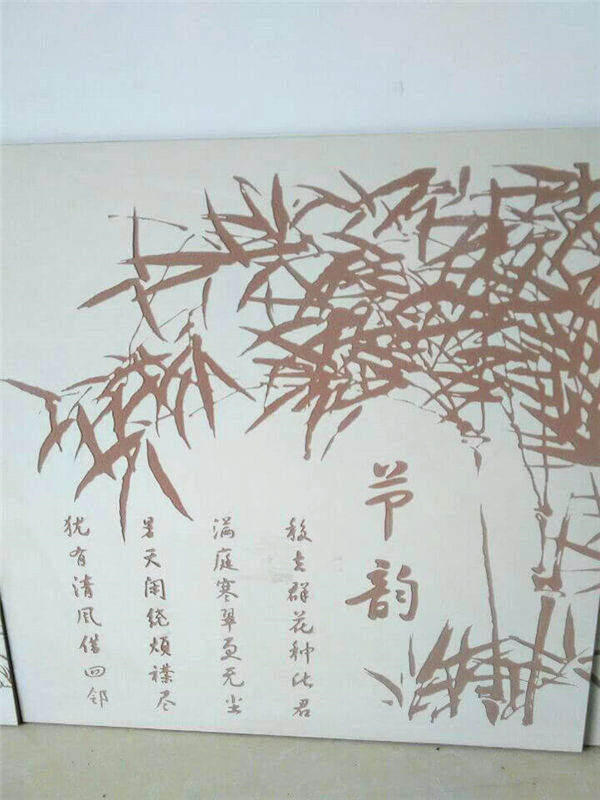 节韵
移去群花种此君
满庭寒翠更无尘
暑天闲绕烦襟尽
犹有清风借四邻